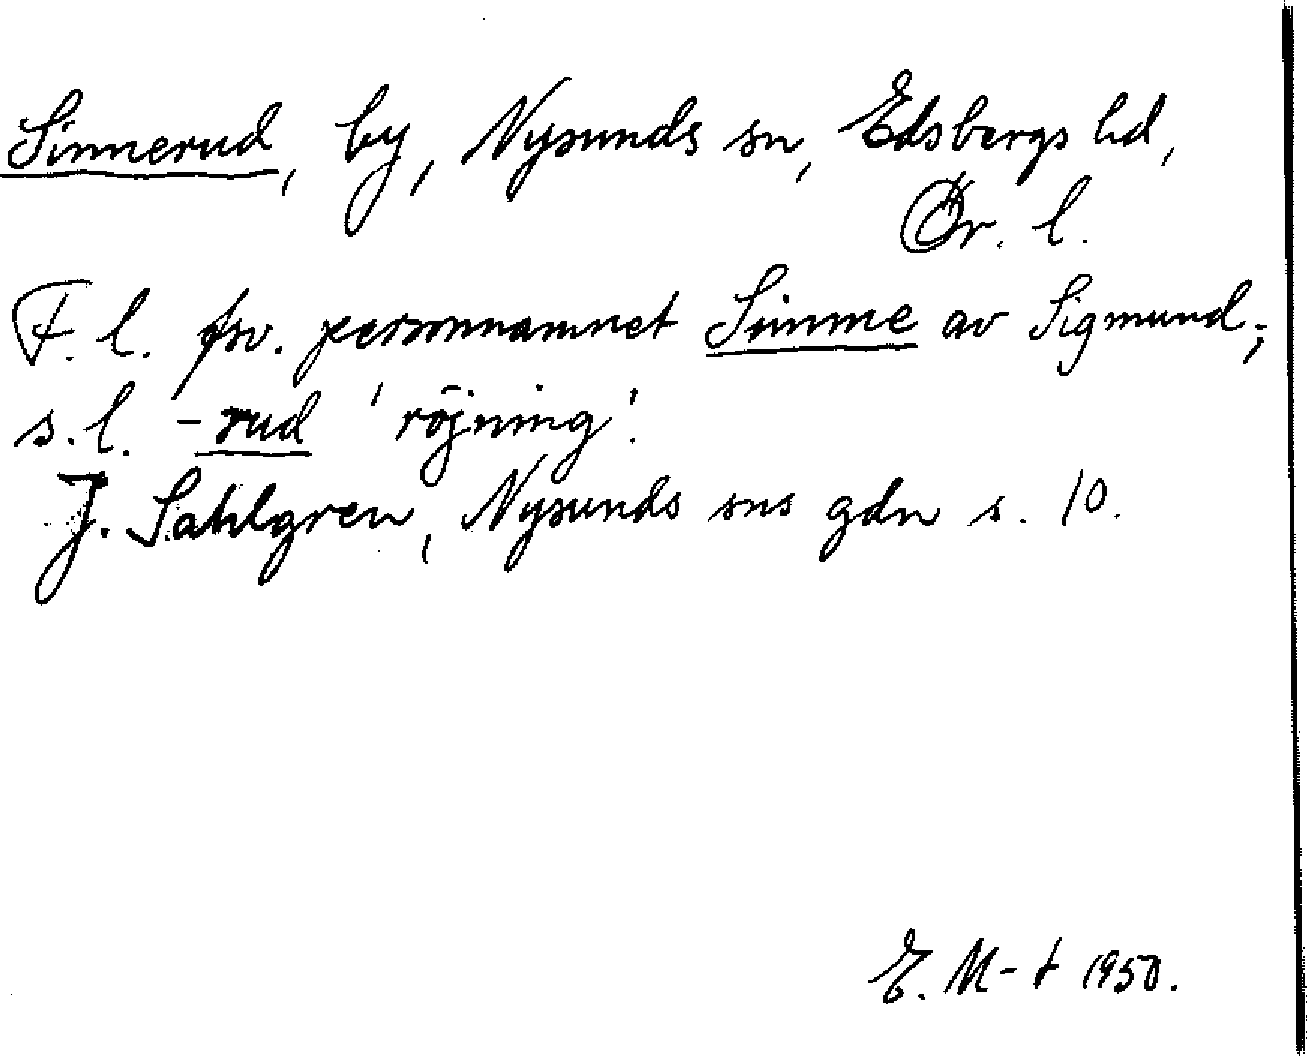 Sinnerud, by, Nysunds sn, Edsbergs hd,
Ör. l.
F. l. fsv. personnamnet Simme av Sigmund;
s. l. -rud 'röjning'.
J. Sahlgren, Nysunds sns gdn s. 10.
E. M-t 1950.